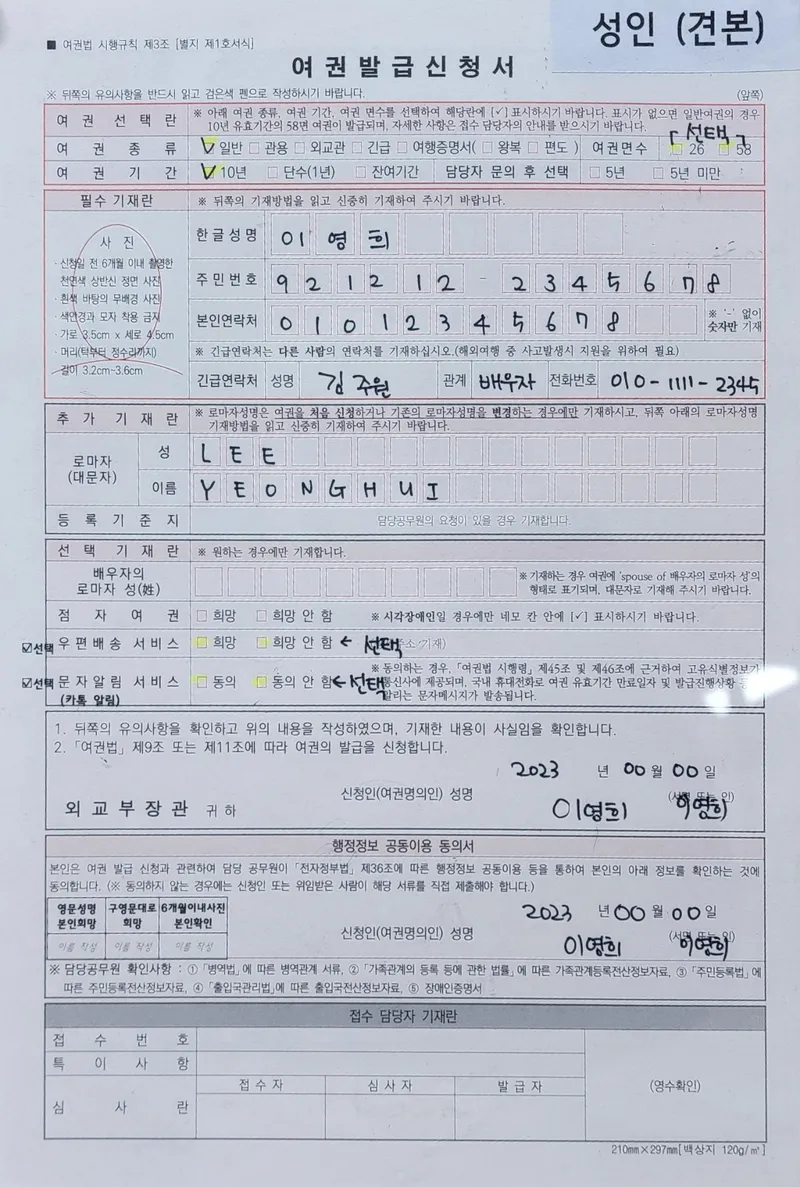 성인 (견본)
■ 여권법 시행규칙 제3조 [별지 제1호서식]
여권발급신청서
※ 뒤쪽의 유의사항을 반드시 읽고 검은색 펜으로 작성하시기 바랍니다. (앞쪽)
여 권 선 택 란 ※ 아래 여권 종류, 여권 기간, 여권 면수를 선택하여 해당란에 [✓] 표시하시기 바랍니다. 표시가 없으면 일반여권의 경우
10년 유효기간의 58면 여권이 발급되며, 자세한 사항은 접수 담당자의 안내를 받으시기 바랍니다.
「선택」
여 권 종 류 ☑ 일반 □ 관용 □ 외교관 □ 긴급 □ 여행증명서( □ 왕복 □ 편도 ) 여권면수 □ 26 □ 58
여 권 기 간 ☑ 10년 □ 단수(1년) □ 잔여기간 담당자 문의 후 선택 □ 5년 □ 5년 미만
필수 기재란 ※ 뒤쪽의 기재방법을 읽고 신중히 기재하여 주시기 바랍니다.
사 진
· 신청일 전 6개월 이내 촬영한
천연색 상반신 정면 사진
· 흰색 바탕의 무배경 사진
· 색안경과 모자 착용 금지
· 가로 3.5cm x 세로 4.5cm
· 머리(턱부터 정수리까지)
길이 3.2cm~3.6cm
한글성명 이 영 희
주민번호 9 2 1 2 1 2 - 2 3 4 5 6 7 8
본인연락처 0 1 0 1 2 3 4 5 6 7 8 ※ '-' 없이
숫자만 기재
※ 긴급연락처는 다른 사람의 연락처를 기재하십시오.(해외여행 중 사고발생시 지원을 위하여 필요)
긴급연락처 성명 김주원 관계 배우자 전화번호 010-1111-2345
추 가 기 재 란 ※ 로마자성명은 여권을 처음 신청하거나 기존의 로마자성명을 변경하는 경우에만 기재하시고, 뒤쪽 아래의 로마자성명
기재방법을 읽고 신중히 기재하여 주시기 바랍니다.
로마자
(대문자)
성 L E E
이름 Y E O N G H U I
등 록 기 준 지 담당공무원의 요청이 있을 경우 기재합니다.
선 택 기 재 란 ※ 원하는 경우에만 기재합니다.
배우자의
로마자 성(姓)
※ 기재하는 경우 여권에 'spouse of 배우자의 로마자 성'의
형태로 표기되며, 대문자로 기재해 주시기 바랍니다.
점 자 여 권 □ 희망 □ 희망 안 함 ※ 시각장애인일 경우에만 네모 칸 안에 [✓] 표시하시기 바랍니다.
☑선택 우편배송 서비스 □ 희망 □ 희망 안 함 ← 선택 주소 기재)
☑선택 문자알림 서비스 □ 동의 □ 동의 안 함 ← 선택
(카톡 알림)
※ 동의하는 경우, 「여권법 시행령」 제45조 및 제46조에 근거하여 고유식별정보가
통신사에 제공되며, 국내 휴대전화로 여권 유효기간 만료일자 및 발급진행상황 등
알리는 문자메시지가 발송됩니다.
1. 뒤쪽의 유의사항을 확인하고 위의 내용을 작성하였으며, 기재한 내용이 사실임을 확인합니다.
2. 「여권법」 제9조 또는 제11조에 따라 여권의 발급을 신청합니다.
2023 년 00 월 00 일
신청인(여권명의인) 성명 이영희 (서명 또는 인) 이영희
외 교 부 장 관 귀 하
행정정보 공동이용 동의서
본인은 여권 발급 신청과 관련하여 담당 공무원이 「전자정부법」 제36조에 따른 행정정보 공동이용 등을 통하여 본인의 아래 정보를 확인하는 것에
동의합니다. (※ 동의하지 않는 경우에는 신청인 또는 위임받은 사람이 해당 서류를 직접 제출해야 합니다.)
영문성명 구영문대로 6개월이내사진
본인희망 희망 본인확인
이름 작성 이름 작성 이름 작성
2023 년 00 월 00 일
신청인(여권명의인) 성명 이영희 (서명 또는 인) 이영희
※ 담당공무원 확인사항 : ① 「병역법」에 따른 병역관계 서류, ② 「가족관계의 등록 등에 관한 법률」에 따른 가족관계등록전산정보자료, ③ 「주민등록법」에
따른 주민등록전산정보자료, ④ 「출입국관리법」에 따른 출입국전산정보자료, ⑤ 장애인증명서
접수 담당자 기재란
접 수 번 호
특 이 사 항
심 사 란 접 수 자 심 사 자 발 급 자 (영수확인)
210㎜×297㎜[백상지 120g/㎡]